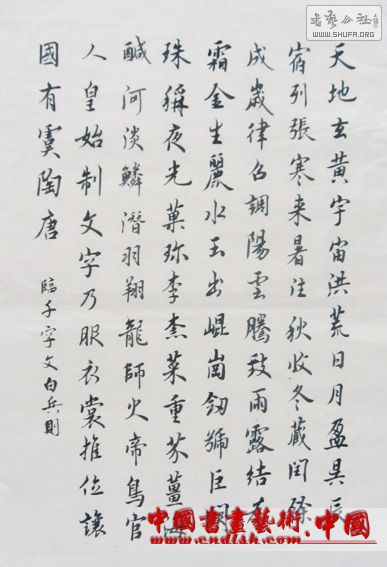 天地玄黃宇宙洪荒日月盈昃辰
宿列張寒来暑往秋收冬藏閏餘
成歲律呂調陽雲騰致雨露結为
霜金生麗水玉出崐崗劒號巨闕
珠稱夜光菓珍李柰菜重芥薑海
鹹河淡鱗潛羽翔龍師火帝鳥官
人皇始制文字乃服衣裳推位讓
國有虞陶唐
臨千字文白兵則
書藝公社
WWW.SHUFA.ORG
中國書畫藝術.中國
www.cndlsh.com